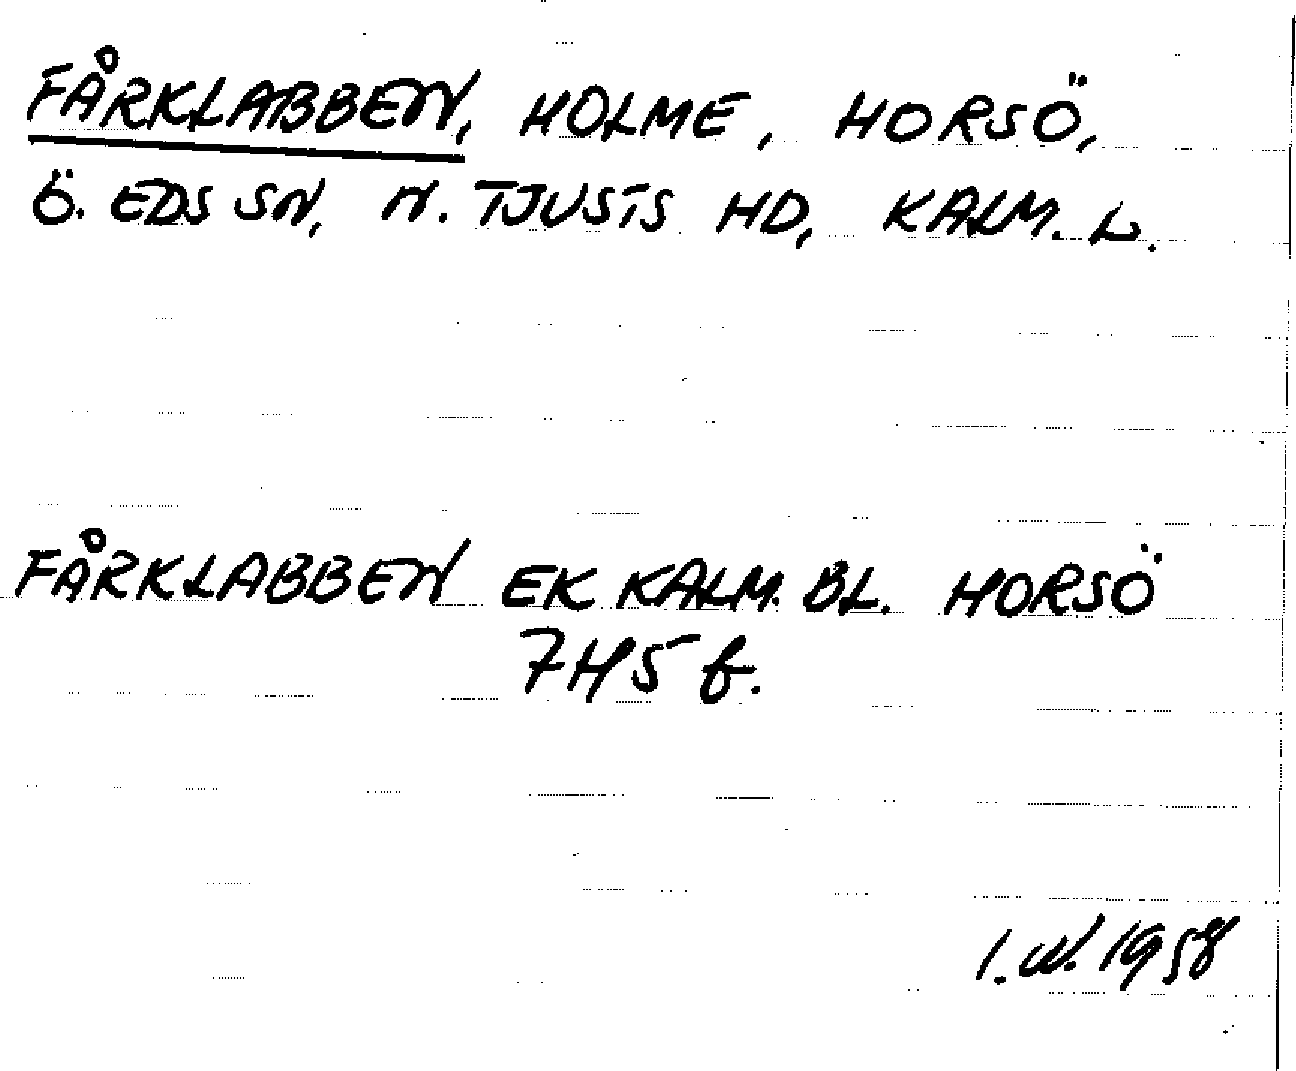 FÅRKLABBEN, HOLME, HORSÖ,
Ö. EDS SN, N. TJUSTS HD, KALM. L.
FÅRKLABBEN EK KALM. BL. HORSÖ
7H5 f.
I. W. 1958